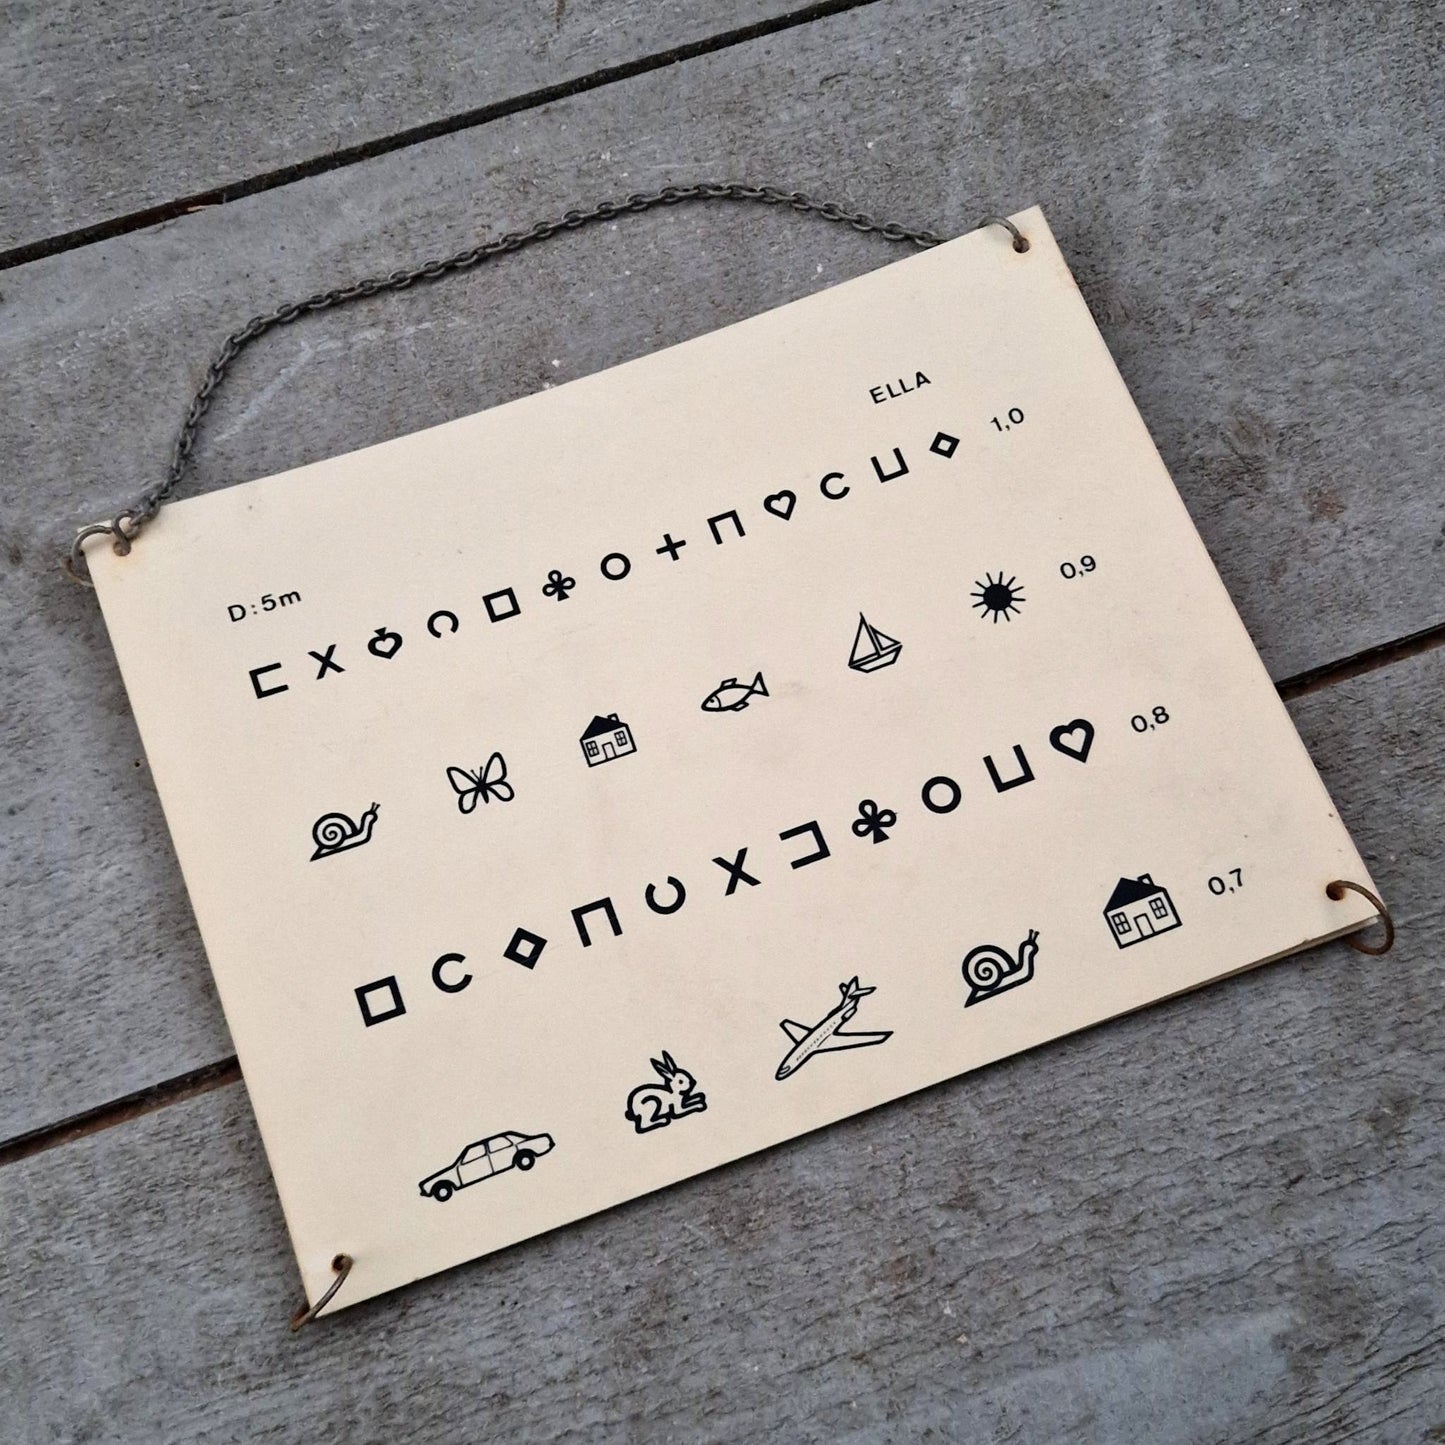 ELLA
D:5m
1,0
0,9
0,8
0,7